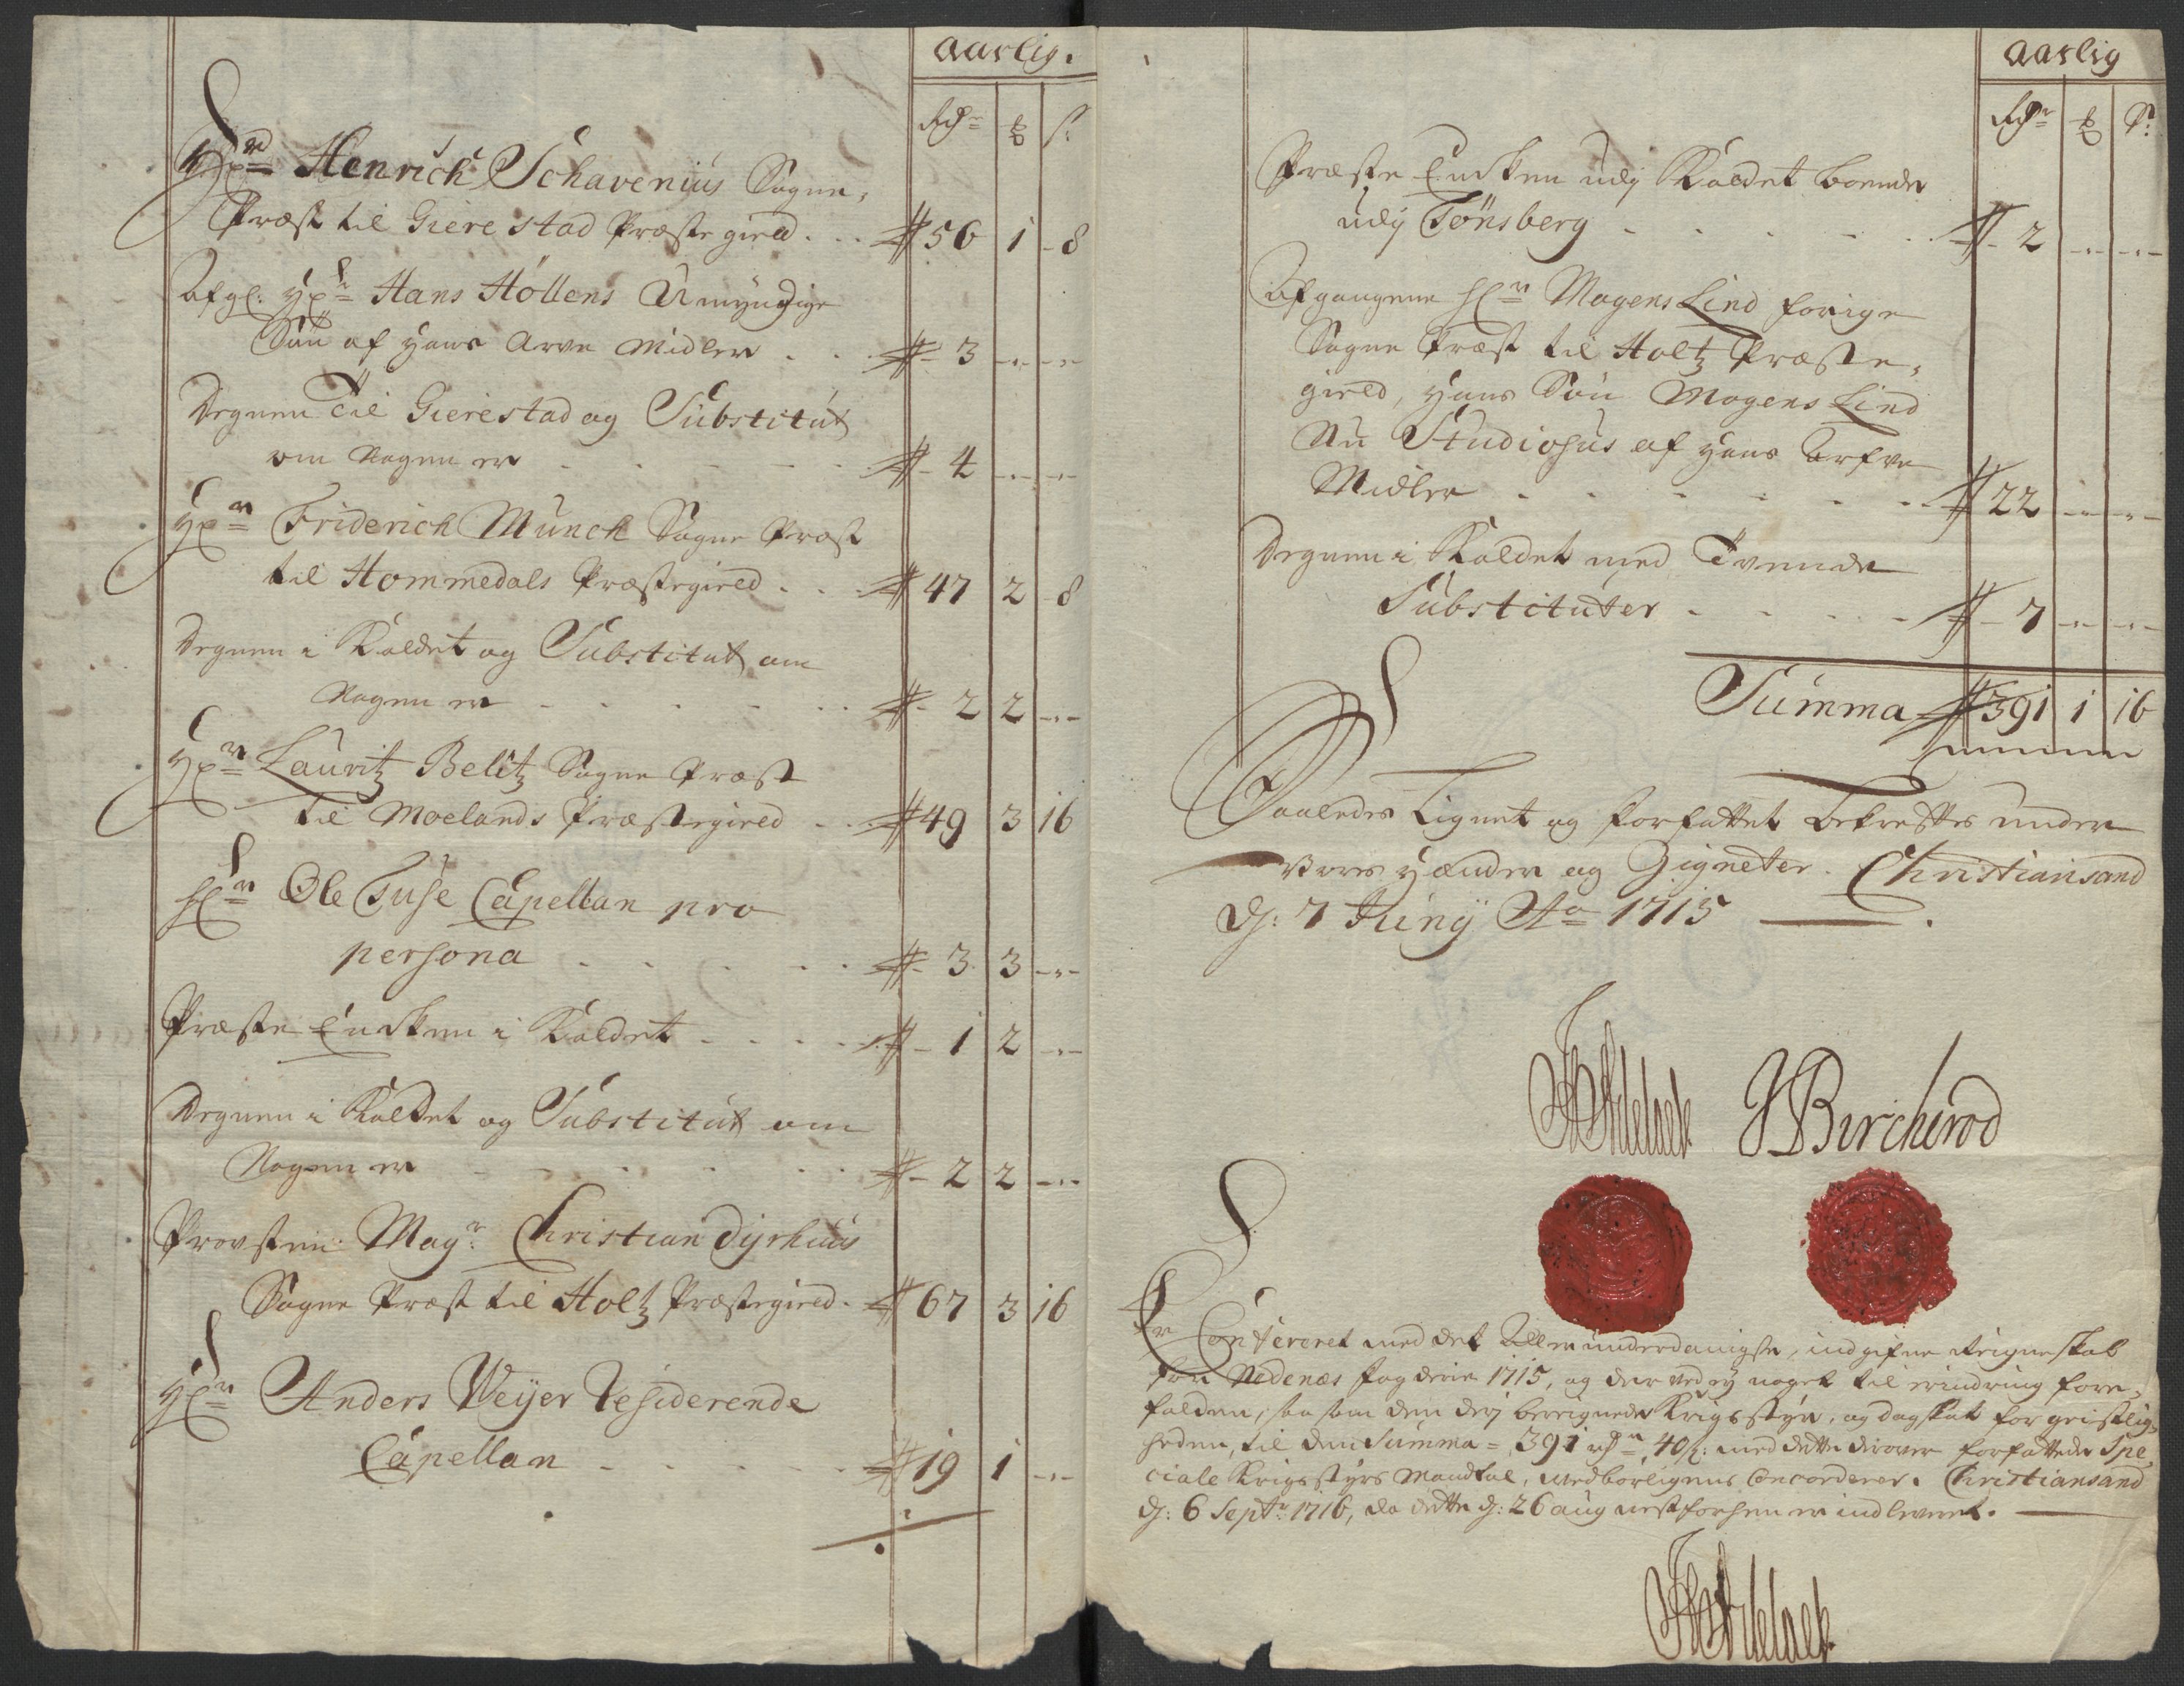 Aarlig.
Rdr ß s:
Hr Henrich Schavenius Sogne-
Præst til Gierestad Præstegield . . . 56 1 8
Afgl: Hr Hans Höllens Umyndige
Søn af hans Arve Midler . . . 3 - -
Degnen Til Gierestad og Substitut
om Nogen er . . . 4 - -
Hr Friderich Munch Sogne Præst
til Hommedals Præstegield . . . 47 2 8
Degnen i Kaldet og Substitut om
Nogen er . . . 2 2 -
Hr Lauritz Belitz Sogne Præst
til Moelands Præstegield . . 49 3 16
Hr Ole Tuse Capellan pro
persona . . . 3 3 -
Præste Encken i Kaldet . . . 1 2 -
Degnen i Kaldet og Substitut om
Nogen er . . . 2 2 -
Provsten Magr: Christian Dyrhuus
Sogne Præst til Holtz Præstegield . 67 3 16
Hr Anders Weyer Residerende
Capellan . . . 19 1 -
Aarlig
Rdr ß s:
Præste Encken udj Kaldet boende
udj Tönsberg . . . 2 - -
Afgangene Hr Mogens Lind forige
Sogne Præst til Holtz Præste-
gield, hans Søn Mogens Lind
Nu Studiosus af hans Arfve
Midler . . . 22 - -
Degnen i Kaldet med Tvende
Substituter . . . 7 - -
Summa 391 1 16
Saaledes Lignet og forfattet bekreftes under
Vores hænder og Zigneter. Christiansand
d: 7 Junij Ao 1715
JBircherod
Er Confereret med det Allerunderdanigste, indgifne Reigneskab
for Nedenæs fogderie 1715, og der ved ej noget til erindring fore-
falden, saa som den derj bereignede Krigsstyr, og dagskat for geistlig-
heden, til den Summa = 391 rdr 40 s: med dette derover forfattede Spe-
ciale Krigsstyrs Mandtal, vedbørligens Concorderer. Christiansand
d: 6 Septr: 1716, da dette d: 26 aug nestforhen er indleveret.